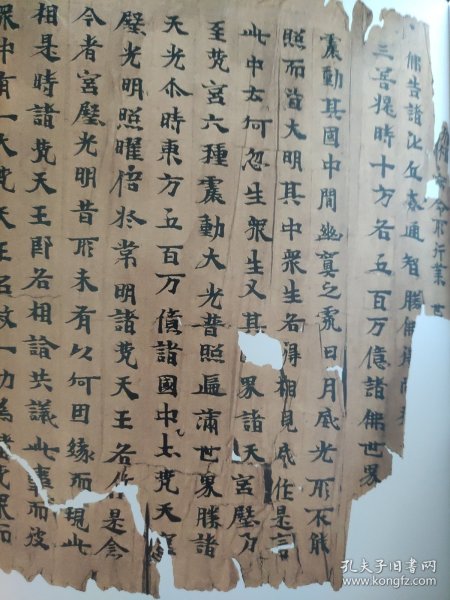 不行業
佛告諸比丘大通智勝佛得
三菩提時十方各五百万億諸佛世界
震動其國中間幽冥之處日月威光所不能
照而皆大明其中衆生各得相見咸作是言
此中云何忽生衆生又其界諸天宮殿乃
至梵宮六種震動大光普照遍滿世界勝諸
天光尒時東方五百万億諸國中土梵天
殿光明照曜倍於常明諸梵天王各作是念
今者宮殿光明昔所未有以何因緣而現此
相是時諸梵天王即各相詣共議此事而彼
衆中有一大梵天王名救一切為諸梵衆而
孔夫子旧书网
www.kongfz.com